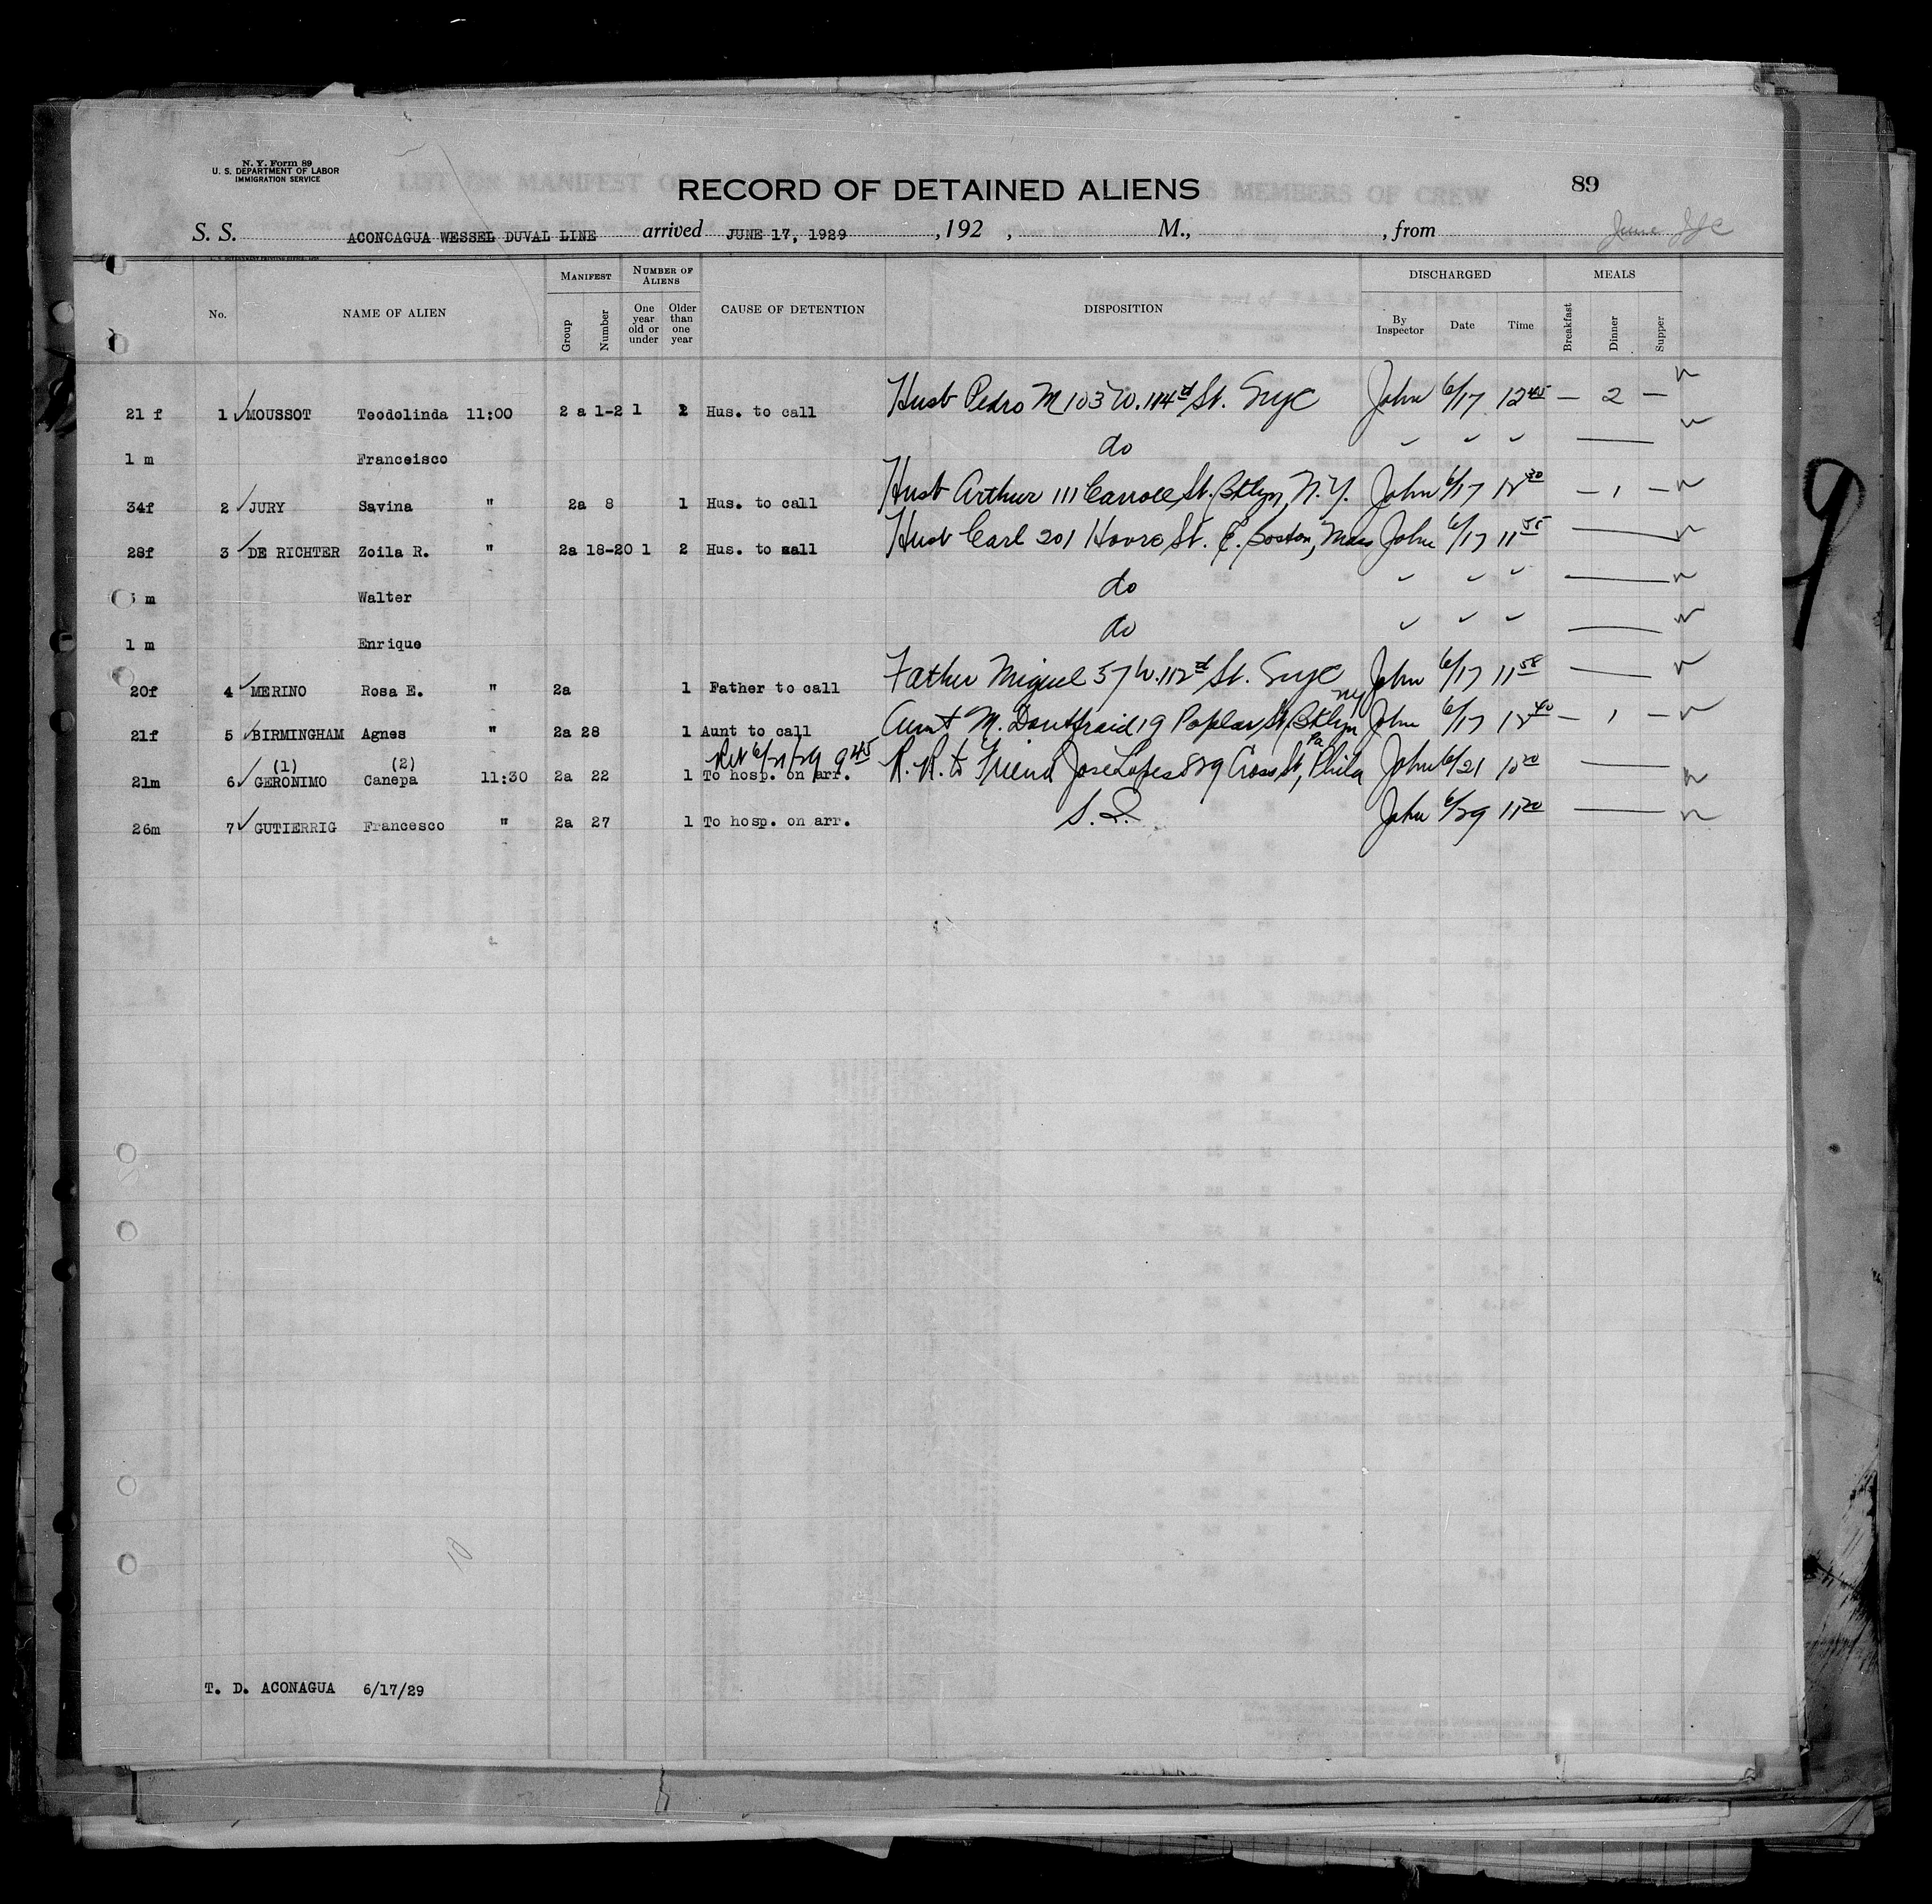 N. Y. Form 89
U. S. DEPARTMENT OF LABOR
IMMIGRATION SERVICE
RECORD OF DETAINED ALIENS
89
S. S. ACONCAGUA WESSEL DUVAL LINE arrived JUNE 17, 1929 , 192 , M., , from June
No. NAME OF ALIEN MANIFEST Group Number NUMBER OF ALIENS One year old or under Older than one year CAUSE OF DETENTION DISPOSITION DISCHARGED By Inspector Date Time MEALS Breakfast Dinner Supper
21 f 1 ✓ MOUSSOT Teodolinda 11:00 2 a 1-2 1 Hus. to call Husb Pedro M 103 W. 114 St. NYC John 6/17 12 45 — 2 —
1 m Franceisco do ✓ ✓ ✓ —
34f 2 ✓ JURY Savina " 2a 8 1 Hus. to call Husb Arthur 111 Carroll St. Bklyn, N.Y. John 6/17 12 30 — 1 —
28f 3 ✓ DE RICHTER Zoila R. " 2a 18-20 1 2 Hus. to call Husb Carl 201 St. E. Boston, Mass John 6/17 11 55 —
m Walter do ✓ ✓ ✓ —
1 m Enrique do ✓ ✓ ✓ —
20f 4 ✓ MERINO Rosa E. " 2a 1 Father to call Father Miguel 57 W. 112 St. NYC John 6/17 11 58 —
21f 5 ✓ BIRMINGHAM Agnes " 2a 28 1 Aunt to call Aunt M. 19 Poplar St, Bklyn NY John 6/17 12 40 — 1 —
Ret 6/21/29 9 45
21m 6 ✓ (1) GERONIMO (2) Canepa 11:30 2a 22 1 To hosp. on arr. R. R. to Friend Jose Lopes 829 Cross St, Phila Pa John 6/21 10 20 —
26m 7 ✓ GUTIERRIG Francesco " 2a 27 1 To hosp. on arr. S. I. John 6/29 11 20 —
9
10
T. D. ACONAGUA 6/17/29